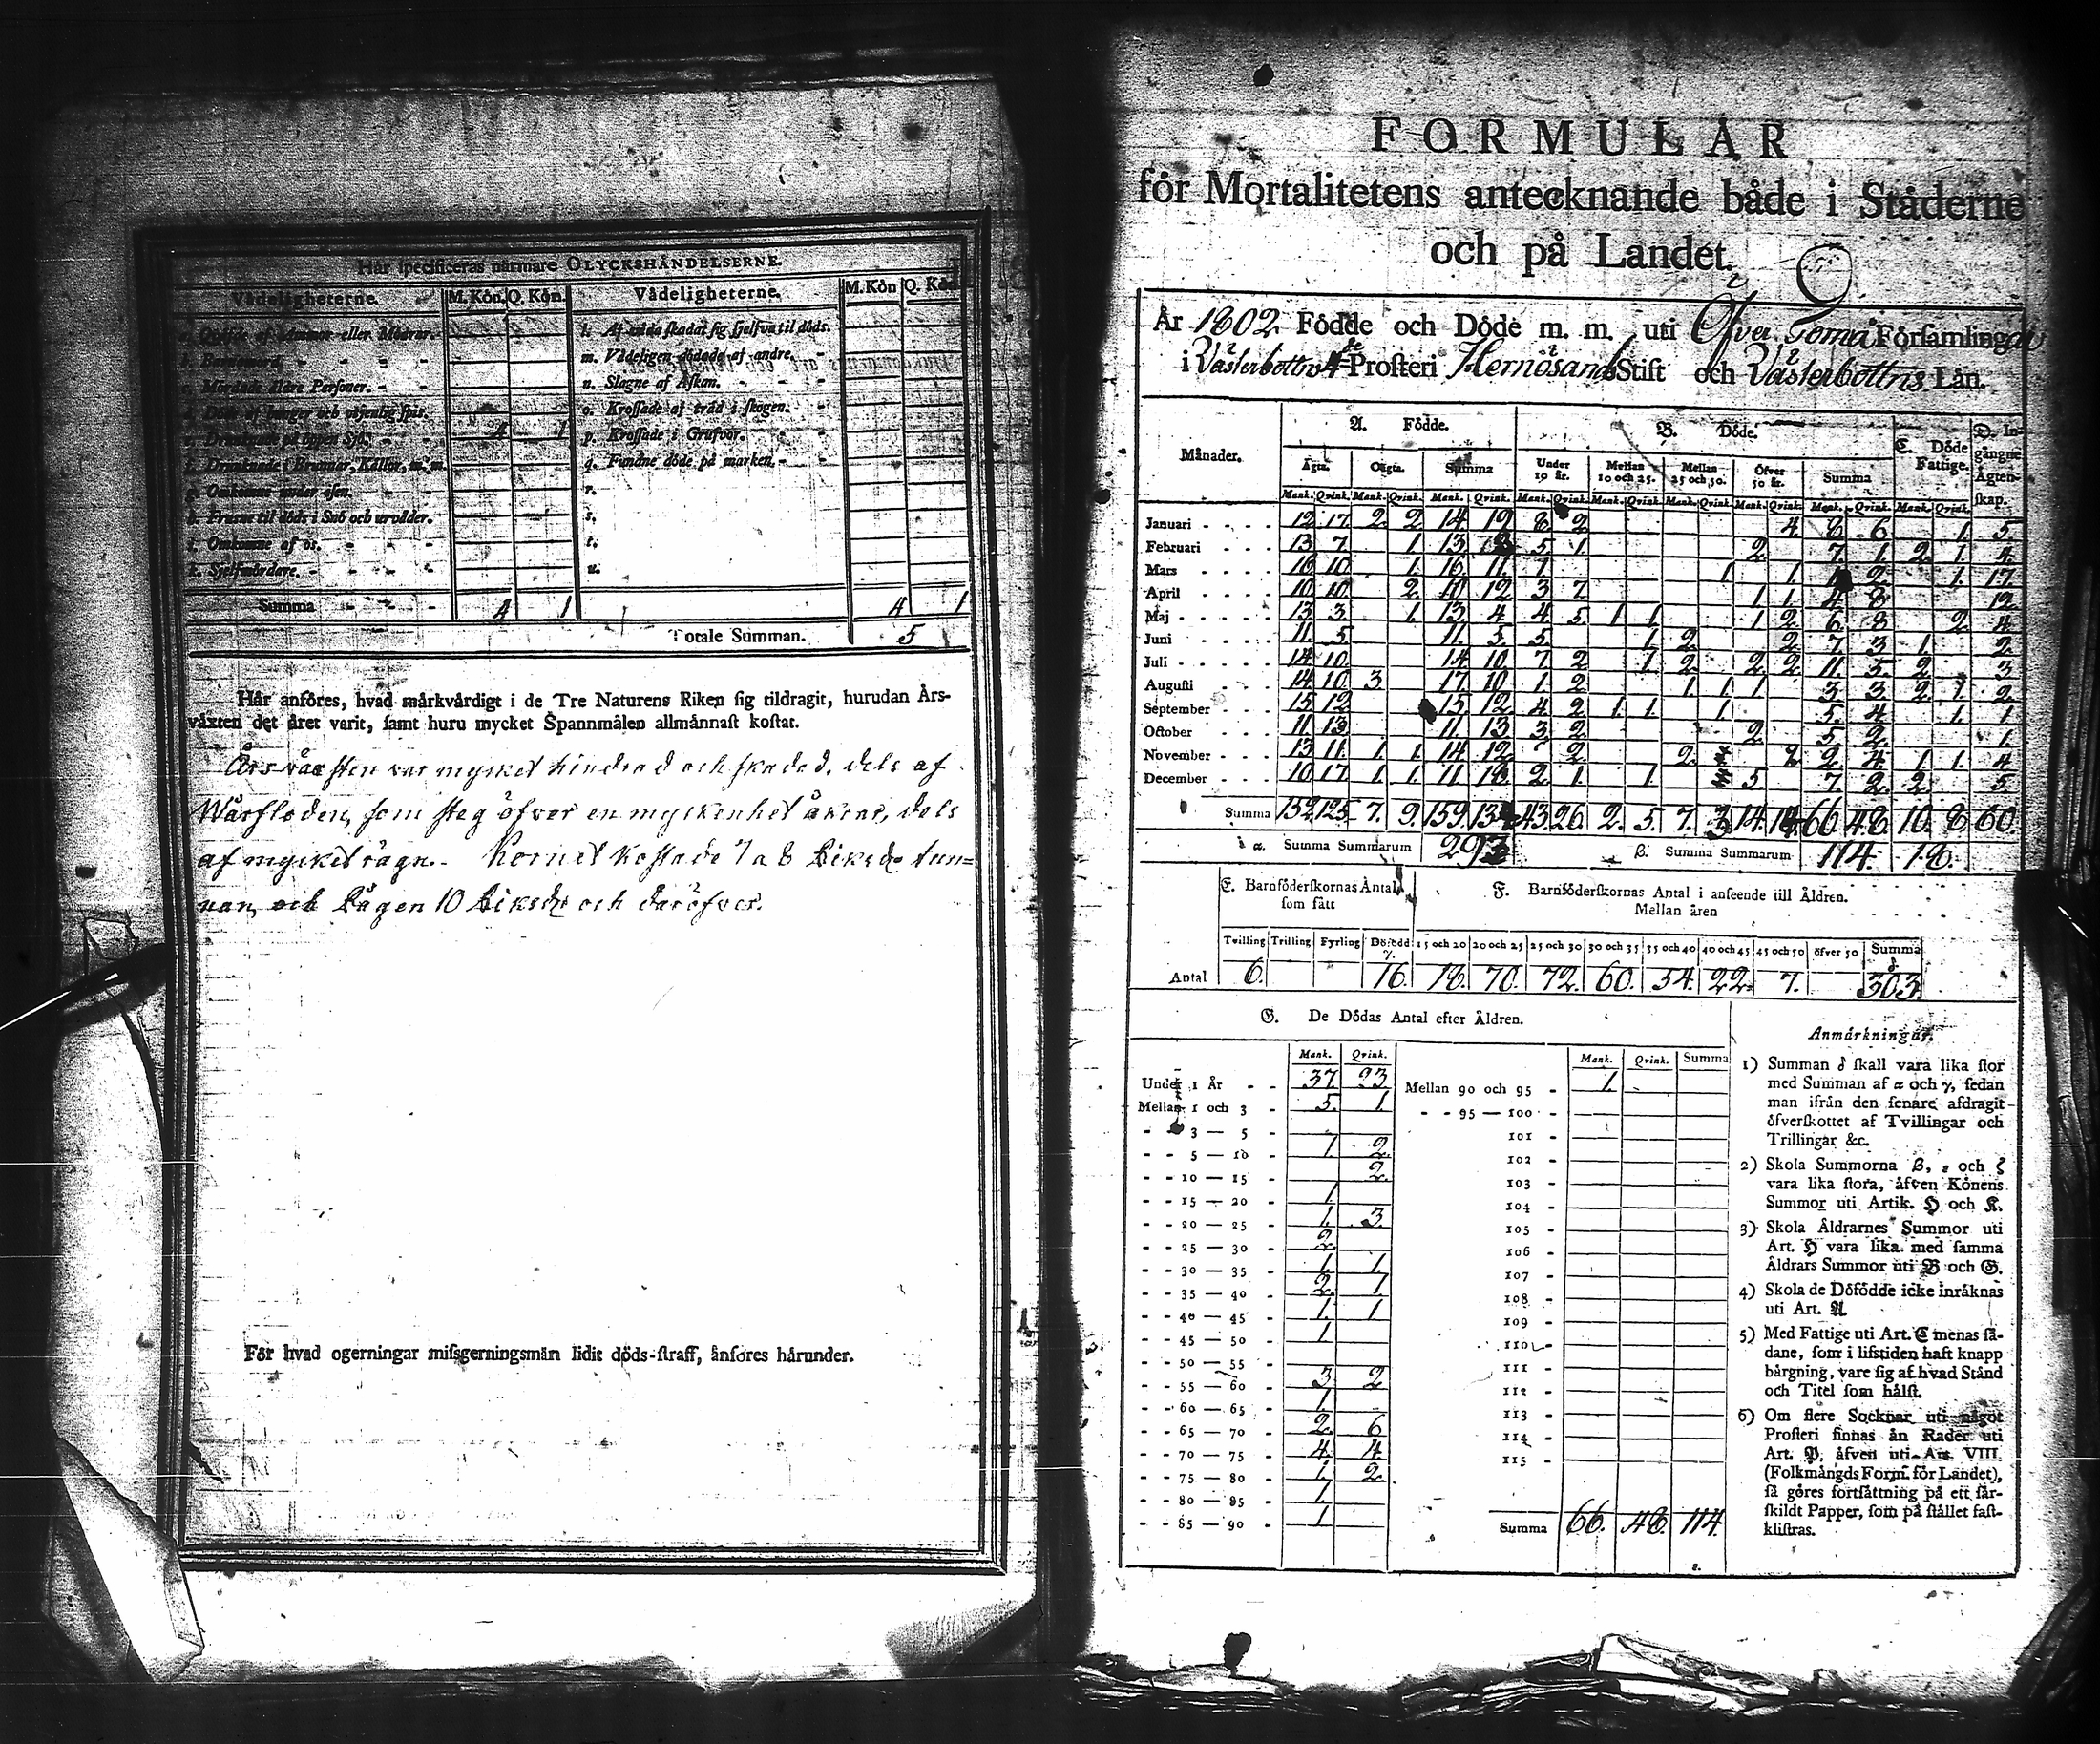 Här specificeras närmare OLYCKSHÄNDELSERNE.
Vådeligheterne. M. Kön. Q. Kön. Vådeligheterne. M. Kön Q. Kön
a. Qväfde af Ammor eller Mödrar. l. Af våda skadat sig sjelfva til döds.
b. Barnamord. m. Vådeligen dödade af andre.
c. Mördade äldre Personer. n. Slagne af Åskan.
d. Döde af hunger och otjenlig spis. o. Krossade af träd i skogen.
e. Drunknade på öppen Sjö. 4 1 p. Krossade i Grufvor.
f. Drunknade i Brunnar, Källor, m. m. q. Fundne döde på marken.
g. Omkomne under isen. r.
h. Frusne til döds i Snö och urväder. s.
i. Omkomne af os. t.
k. Sjelfmördare. u.
Summa 4 1 4 1
Totale Summan. 5
Här anföres, hvad märkvärdigt i de Tre Naturens Riken sig tildragit, hurudan Års-
växten det året varit, samt huru mycket Spannmålen allmännast kostat.
Årsväxsten var mycket hindrad och skadad, dels af
Wårfloden, som steg öfver en myckenhet åkrar, dels
af mycket rägn. Kornet kostade 7 a 8 Riksd. tun=
nan, och Rågen 10 Riksd. och daröfver.
För hvad ogerningar missgerningsmän lidit döds-straff, anföres härunder.
FORMULÄR
för Mortalitetens antecknande både i Städerne
och på Landet.
År 1802. Födde och Döde m. m. uti Öfver Torneå Församlingar
i Västerbottns 4de Prosteri Hernösands Stift och Västerbottns Län.
Månader. A. Födde. B. Döde. C. Döde Fattige. D. Ingångne Ägtenskap.
Ägta. Oägta. Summa Under 10 år. Mellan 10 och 25. Mellan 25 och 50. Öfver 50 år. Summa
Mank. Qvink. Mank. Qvink. Mank. Qvink. Mank. Qvink. Mank. Qvink. Mank. Qvink. Mank. Qvink. Mank. Qvink. Mank. Qvink.
Januari 12 17 2 2 14 19 8 2 4 8 6 1 5
Februari 13 7 1 13 5 1 2 7 1 2 1 4
Mars 16 10 1 16 11 1 1 1 2 1 17
April 10 10 2 10 12 3 7 1 1 4 8 12
Maj 13 3 1 13 4 4 5 1 1 1 2 6 8 2 4
Juni 11 5 11 5 5 1 2 2 7 3 1 2
Juli 14 10 14 10 7 2 1 2 2 2 11 5 2 3
Augusti 14 10 3 17 10 1 2 1 1 1 3 3 2 1 2
September 15 12 15 12 4 2 1 1 1 5 4 1 1
October 11 13 11 13 3 2 2 5 2 1
November 13 11 1 1 14 12 2 2 2 2 4 1 1 4
December 10 17 1 1 11 18 2 1 1 5 7 2 2 5
Summa 152 125 7 9 159 134 43 26 2 5 7 3 14 14 66 48 10 8 60
α. Summa Summarum 293 β. Summa Summarum 114. 18.
E. Barnföderskornas Antal, som fått F. Barnföderskornas Antal i anseende till Åldren.
Mellan åren
Tvilling Trilling Fyrling Dödfödd γ. 15 och 20 20 och 25 25 och 30 30 och 35 35 och 40 40 och 45 45 och 50 öfver 50 Summa δ
Antal 6. 16. 18. 70. 72. 60. 54. 22. 7. 303.
G. De Dödas Antal efter Åldren.
Mank. Qvink. Mank. Qvink. Summa
Under 1 År 37. 23. Mellan 90 och 95 1.
Mellan 1 och 3 5. 1. 95 — 100
3 — 5 101
5 — 10 1 2. 102
10 — 15 2. 103
15 — 20 1. 104
20 — 25 1. 3 105
25 — 30 2. 106
30 — 35 1. 1. 107
35 — 40 2. 1 108
40 — 45 1. 1 109
45 — 50 1 110
50 — 55 111
55 — 60 3 2 112
60 — 65 1. 113
65 — 70 2. 6 114
70 — 75 4. 4. 115
75 — 80 1. 2.
80 — 85 1.
85 — 90 1 Summa 66. 48. 114
Anmärkningar.
1) Summan δ skall vara lika stor
med Summan af α och γ, sedan
man ifrån den senare afdragit
öfverskottet af Tvillingar och
Trillingar &c.
2) Skola Summorna β, ε och ζ
vara lika stora, äfven Könens
Summor uti Artik. H och K.
3) Skola Åldrarnes Summor uti
Art. H vara lika med samma
Åldrars Summor uti B och G.
4) Skola de Dödfödde icke inräknas
uti Art. A.
5) Med Fattige uti Art. C menas så-
dane, som i lifstiden haft knapp
bärgning, vare sig af hvad Stånd
och Titel som hälst.
6) Om flere Socknar uti något
Prosteri finnas än Rader uti
Art. B, äfven uti Art. VIII.
(Folkmängds Form. för Landet),
så göres fortsättning på ett sär-
skildt Papper, som på stället fast-
klistras.